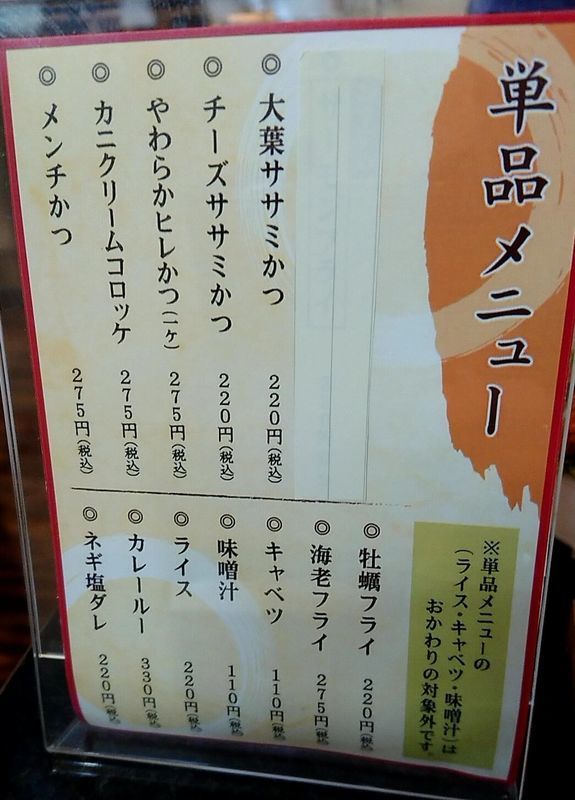 単品メニュー
◎大葉ササミかつ 220円(税込)
◎チーズササミかつ 220円(税込)
◎やわらかヒレかつ(一ケ) 275円(税込)
◎カニクリームコロッケ 275円(税込)
◎メンチかつ 275円(税込)
※単品メニューの
(ライス・キャベツ・味噌汁)は
おかわりの対象外です。
◎牡蠣フライ 220円(税込)
◎海老フライ 275円(税込)
◎キャベツ 110円(税込)
◎味噌汁 110円(税込)
◎ライス 220円(税込)
◎カレールー 330円(税込)
◎ネギ塩ダレ 220円(税込)